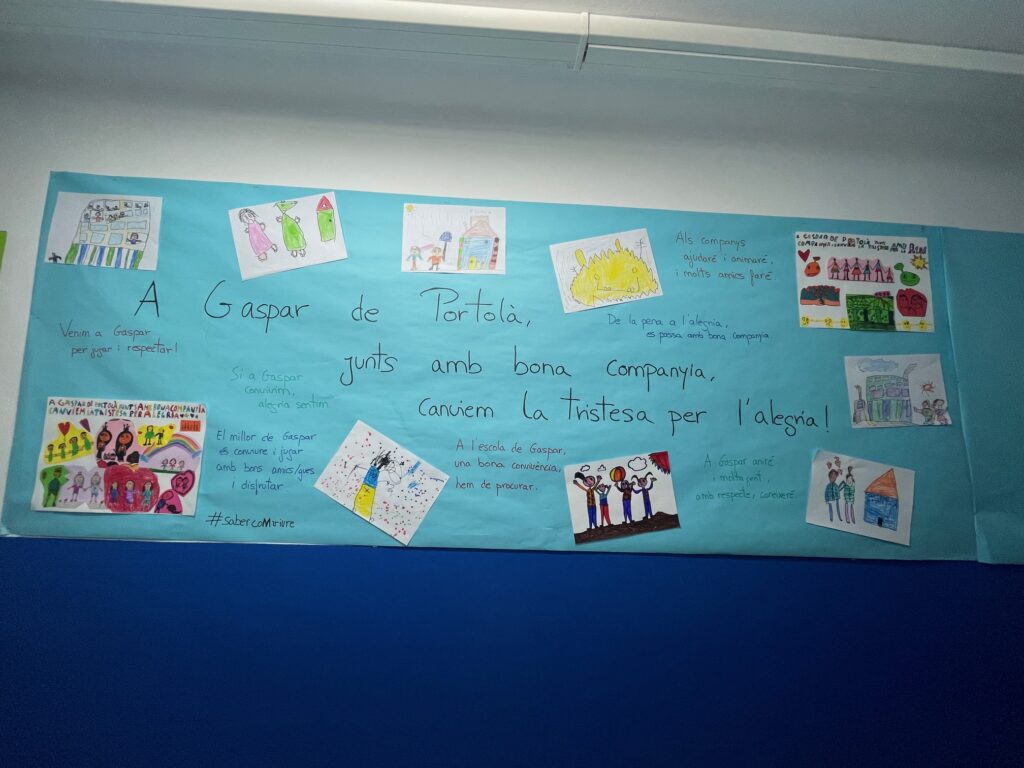 A Gaspar de Portolà,
junts amb bona companyia,
canviem la tristesa per l'alegria!
Venim a Gaspar
per jugar i respectar!
Si a Gaspar
convivim,
alegria sentim.
El millor de Gaspar
és conviure i jugar
amb bons amics/gues
i disfrutar.
#sabercoMviure
A l'escola de Gaspar,
una bona convivència,
hem de procurar.
De la pena a l'alegria,
es passa amb bona companyia
Als companys
ajudaré i animaré,
i molts amics faré.
A Gaspar aniré
i molta gent,
amb respecte, coneixeré.
A GASPAR DE PORTOLÀ JUNTS AMB BONA COMPANYIA
CANVIEM LA TRISTESA PER ALEGRIA
A GASPAR DE PORTOLÀ JUNTS AMB BONA
COMPANYIA